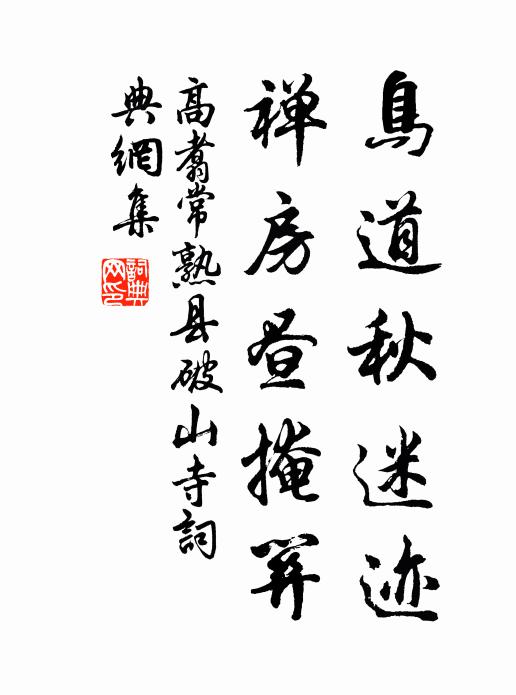 鳥道秋迷迹
禅房昼掩關
高翥常熟县破山寺詞
典網集
詞典
网印